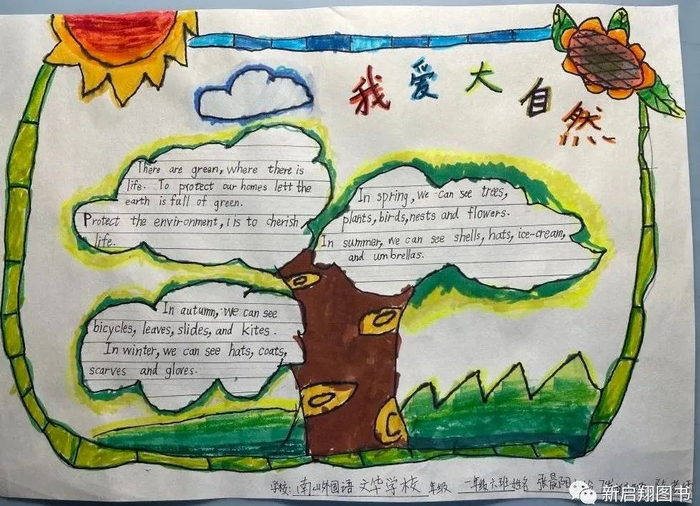 我爱大自然
There are green, where there is
life. To protect our homes lett the
earth is full of green.
Protect the environment, Its to cherish
life.
In spring, we can see trees,
plants, birds, nests and flowers.
In summer, we can see shells, hats, ice-cream,
and umbrellas.
In autumn, we can see
bicycles, leaves, slides, and kites.
In winter, we can see hats, coats,
scarves and gloves.
学校: 南山外国语 文华学校 年级 一年级六班 姓名 张晨阳
新启翔图书